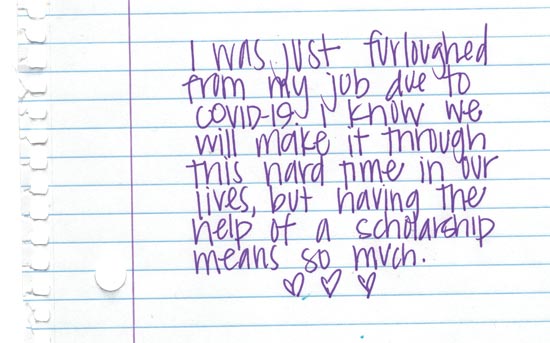 I was just furloughed
from my job due to
COVID-19. I know we
will make it through
this hard time in our
lives, but having the
help of a scholarship
means so much.
♡ ♡ ♡